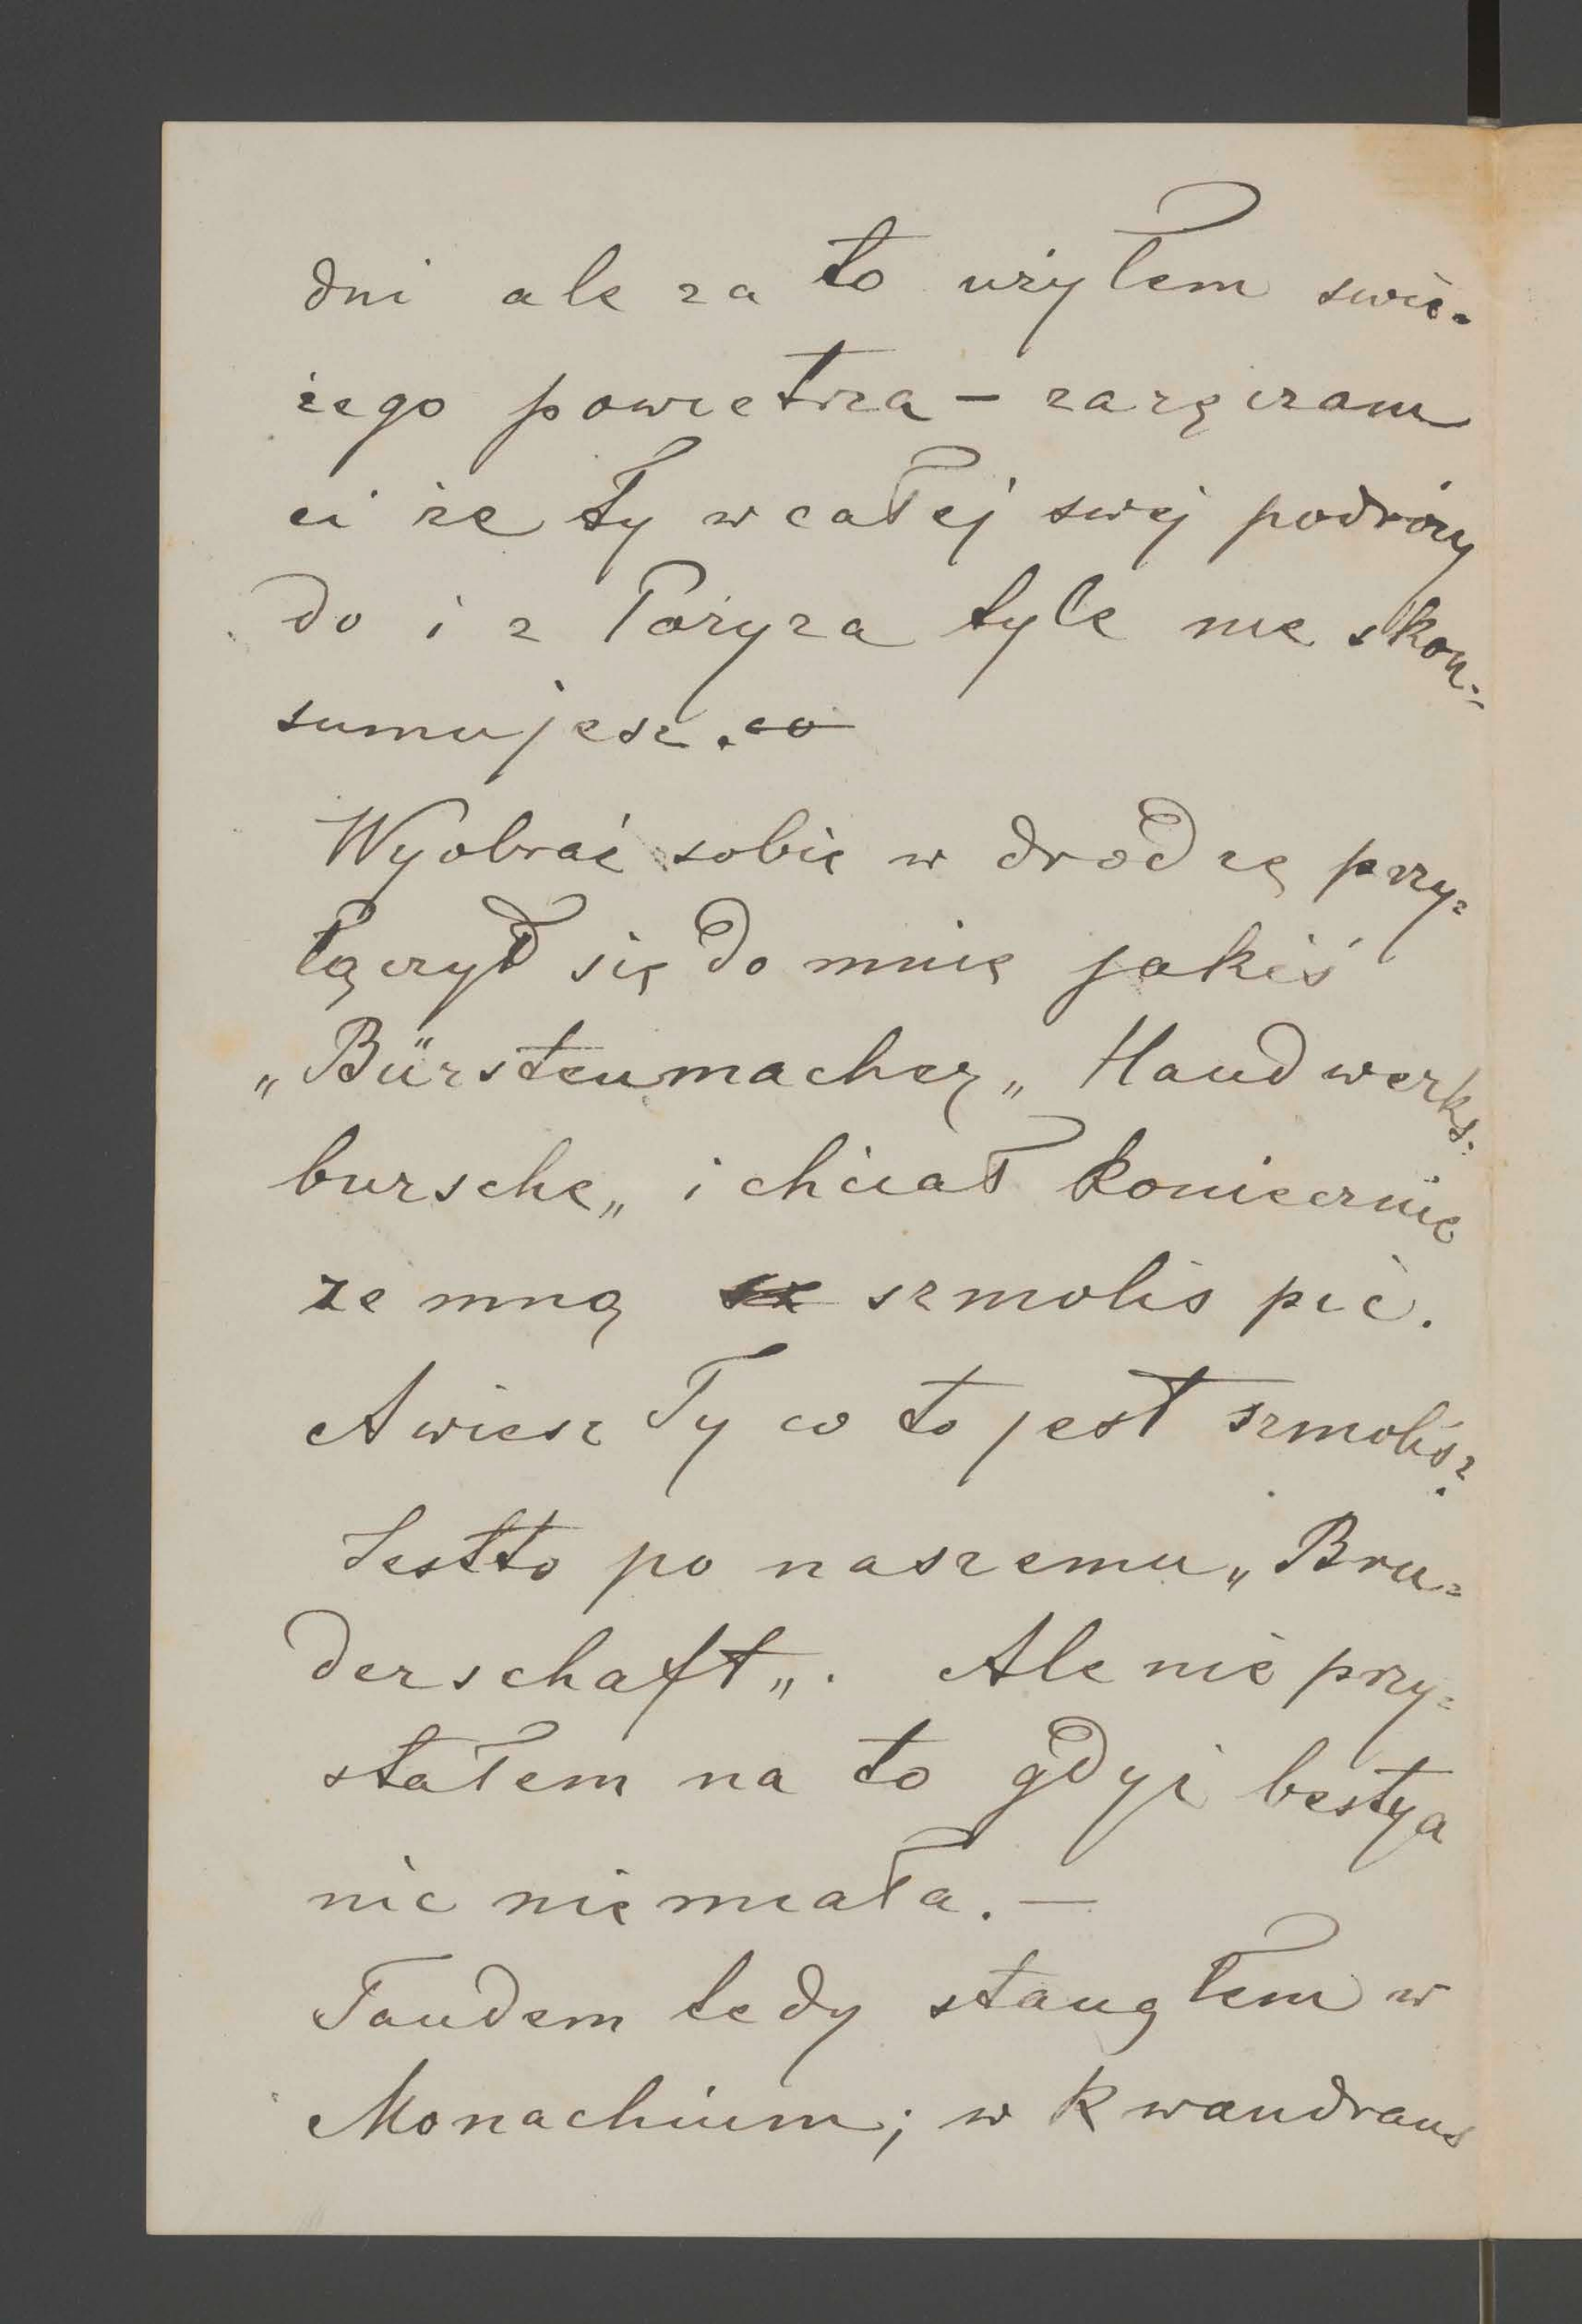 dni ale za to użyłem świe-
żego powietrza – zaręczam
ci że ty w całej swej podróży
do i z Paryża tyle nie skon-
sumujesz. ~~co~~
Wyobraź sobie w drodze przy-
łączył się do mnie jakiś
„Bürstenmacher„ Handwerks-
bursche„ i chciał koniecznie
ze mną ~~sz~~ szmolis pić.
A wiesz Ty co to jest szmolis?
Jestto po naszemu „Bru-
derschaft„. Ale nie przy-
stałem na to gdyż bestya
nic nie miała. –
Tandem tedy stanąłem w
Monachium; w kwandrans